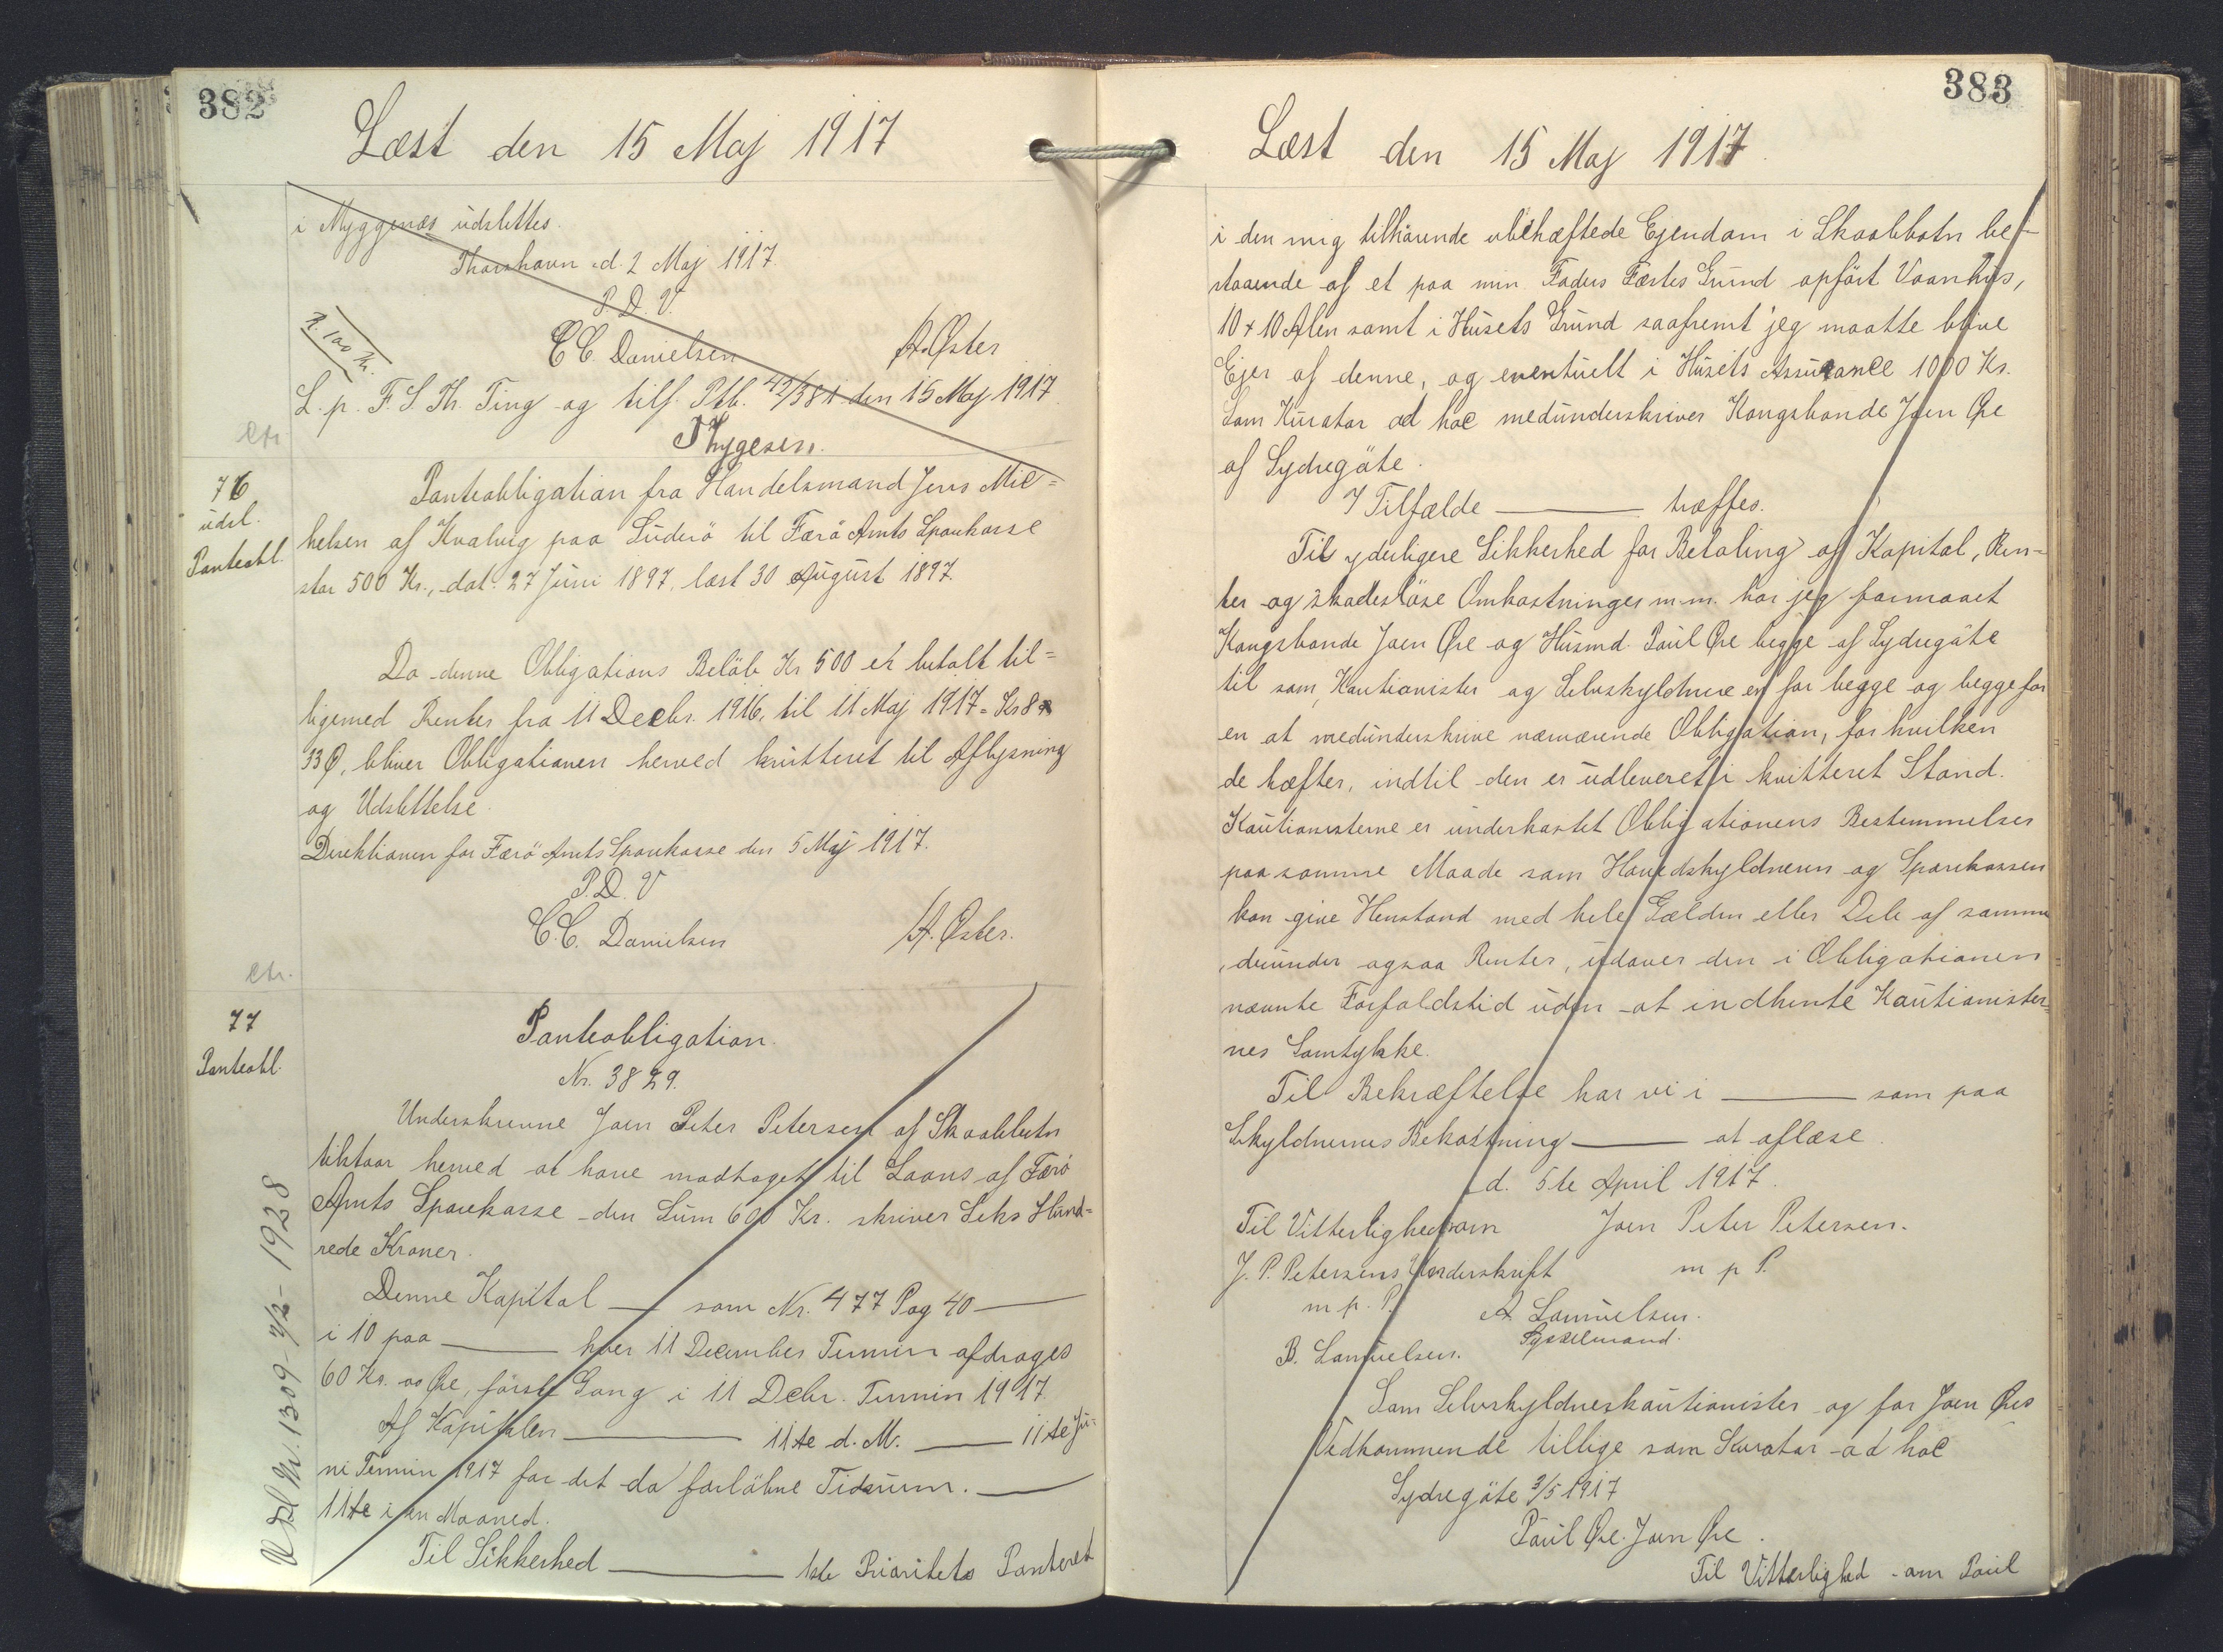 382
Læst den 15 Maj 1917
i Myggenæs udslettes.
Thorshavn d. 2 Maj 1917.
P. D. V.
C C. Danielsen A. Øster
R. 100 Kr.
L. p. F. S. Th. Ting og tilf. Ptb. 42/381 den 15 Maj 1917.
Thygesen.
76
udsl.
Panteobl.
Panteobligation fra Handelsmand Jens Mic=
helsen af Kvalvig paa Suderö til Færö Amts Sparekasse
stor 500 Kr., dat. 27 Juni 1897, læst 30 August 1897.
Da denne Obligations Beløb Kr 500 er betalt til=
ligemed Renter fra 11 Decbr. 1916, til 11 Maj 1917 = Kr 8
33 Ø, bliver Obligationen herved kvitteret til Aflysning
og Udslettelse.
Direktionen for Færö Amts Sparekasse den 5 Maj 1917.
P. D. V
C. C. Danielsen A. Øster.
77
Panteobl.
Panteobligation.
Nr. 3829.
Underskrevne Joen Peter Petersen af Skaalebotn
tilstaar herved at have modtaget til Laans af Færö
Amts Sparekasse den Sum 600 Kr. skriver Seks Hund=
rede Kroner.
Denne Kapital — som Nr. 477 Pag 40 —
i 10 paa — hver 11 December Termin afdrages
60 Kr. 00 Øre, første Gang i 11 Decbr. Termin 1917.
Af Kapitalen — 11te d. M. — 11te Ju=
ni Termin 1917 for det da forløbne Tidsrum. —
11te i en Maaned.
Til Sikkerhed — 1ste Prioritets Panteret
Nr. 1309 - 7/2 - 1928
383
Læst den 15 Maj 1917.
i den mig tilhörende ubehæftede Ejendom i Skaalebotn be-
staaende af et paa min Faders Fæstes Grund opfört Vaanhus,
10 x 10 Alen samt i Husets Grund saafremt jeg maatte blive
Ejer af denne, og eventuelt i Husets Assurance 1000 Kr.
Som Kurator ad hoc medunderskriver Kongsbonde Joen Øre
af Sydregöte.
I Tilfælde — træffes.
Til yderligere Sikkerhed for Betaling af Kapital, Ren=
ter og skadesløse Omkostninger m.m. har jeg formaaet
Kongsbonde Joen Øre og Husmd. Poul Øre begge af Sydregöte
til som Kautionister og Selvskyldnere en for begge og begge for
en at medunderskrive nærværende Obligation, for hvilken
de hæfter, indtil den er udleveret i kvitteret Stand.
Kautionisterne er underkastet Obligationens Bestemmelser
paa samme Maade som Hovedskyldneren og Sparekassen
kan give Henstand med hele Gælden eller Dele af samme
, derunder ogsaa Renter, udover den i Obligationen
nævnte Forfaldstid uden at indhente Kautionister=
nes Samtykke.
Til Bekræftelse har vi i — som paa
Skyldnernes Bekostning — at aflæse.
d. 5te April 1917.
Til Vitterlighed om Joen Peter Petersen.
J. P. Petersens Underskrift m p P.
m p. P. A Samuelsen.
Sysselmand.
B. Samuelsen.
Som Selvskyldnerkautionister og for Joen Øres
Vedkommende tillige som Kurator ad hoc
Sydregöte 3/5 1917
Poul Øre. Joen Øre.
Til Vitterlighed om Poul